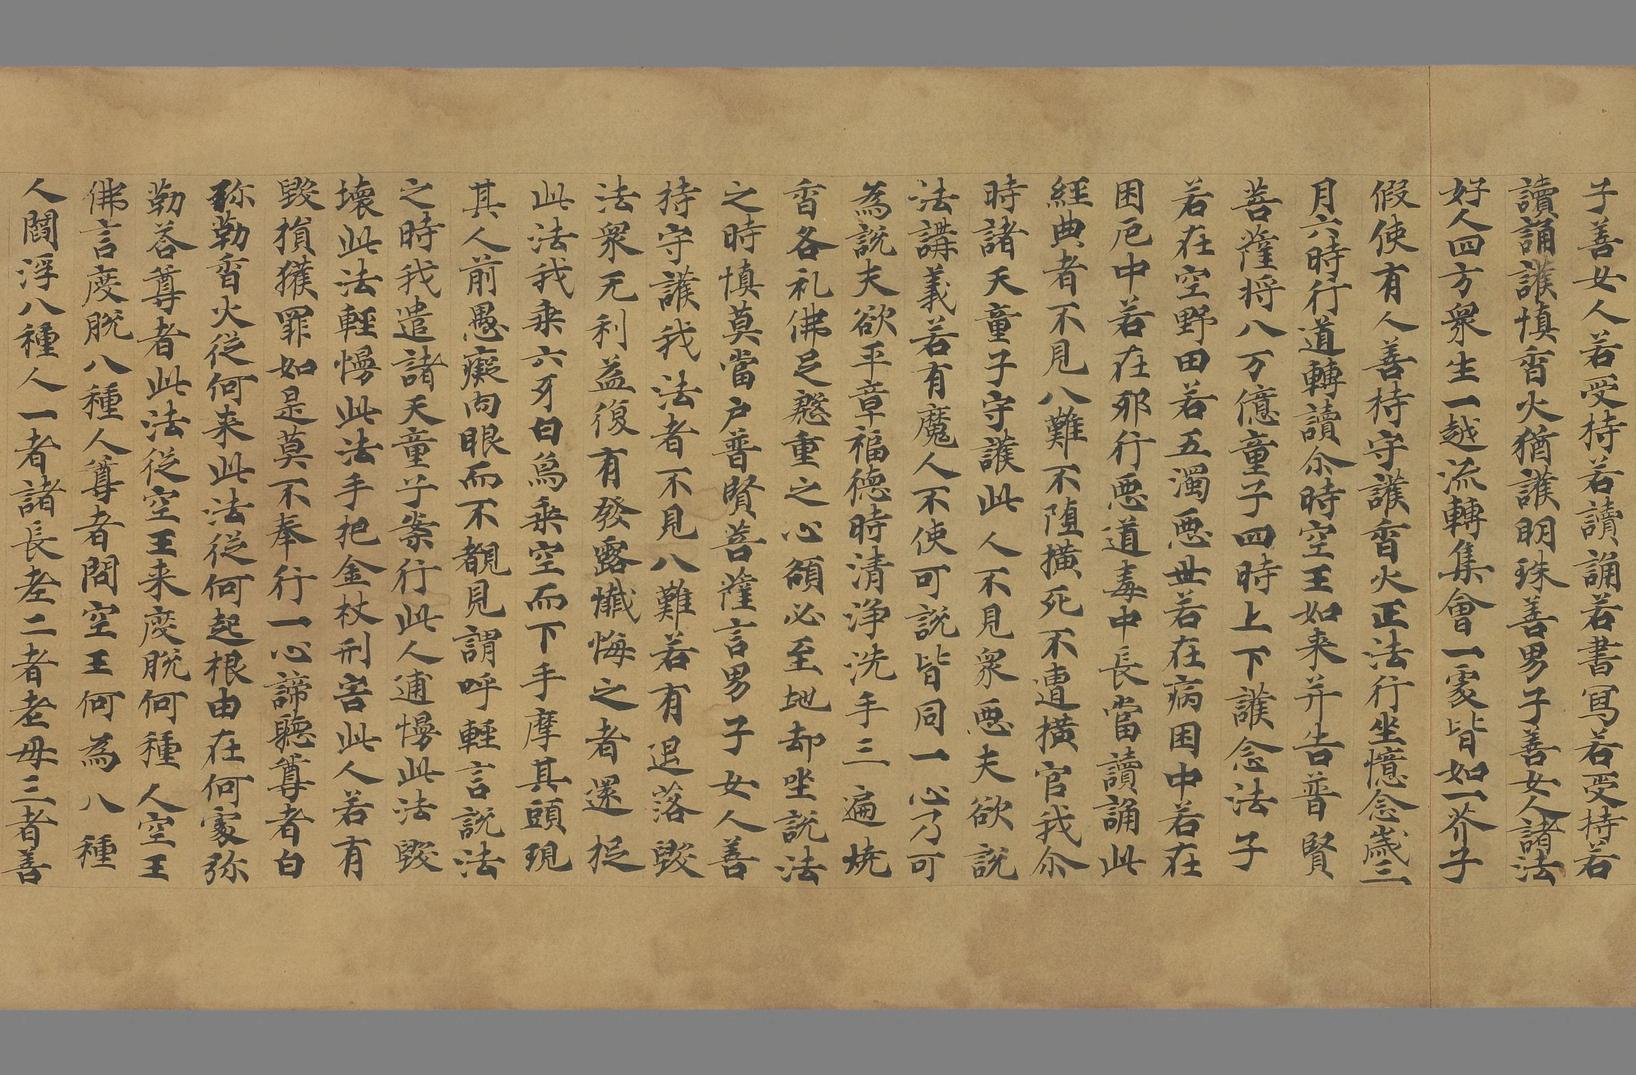 子善女人若受持若讀誦若書寫若受持若
讀誦護慎香火猶護明珠善男子善女人諸法
好人四方衆生一越流轉集會一處皆如一芥子
假使有人善持守護香火正法行坐憶念歲三
月六時行道轉讀尒時空王如来并告普賢
菩薩将八万億童子四時上下護念法子
若在空野田若五濁惡世若在病困中若在
困厄中若在邪行惡道毒中長當讀誦此
經典者不見八難不堕橫死不遭橫官我尒
時諸天童子守護此人不見衆惡夫欲說
法講義若有魔人不使可說皆同一心乃可
為說夫欲平章福德時清淨洗手三遍燒
香各礼佛足慇重之心頟必至地却坐說法
之時慎莫當户普賢菩薩言男子女人善
持守護我法者不見八難若有退落毀
法衆无利益復有發露懺悔之者還捉
此法我乘六牙白爲乘空而下手摩其頭現
其人前愚癡肉眼而不覩見謂呼輕言說法
之時我遣諸天童子案行此人逋慢此法毀
壞此法輕慢此法手把金杖刑害此人若有
毀損獲罪如是莫不奉行一心諦聽尊者白
弥勒香火從何来此法從何起根由在何處弥
勒荅尊者此法從空王来度脫何種人空王
佛言度脫八種人尊者問空王何為八種
人閻浮八種人一者諸長老二者老母三者善